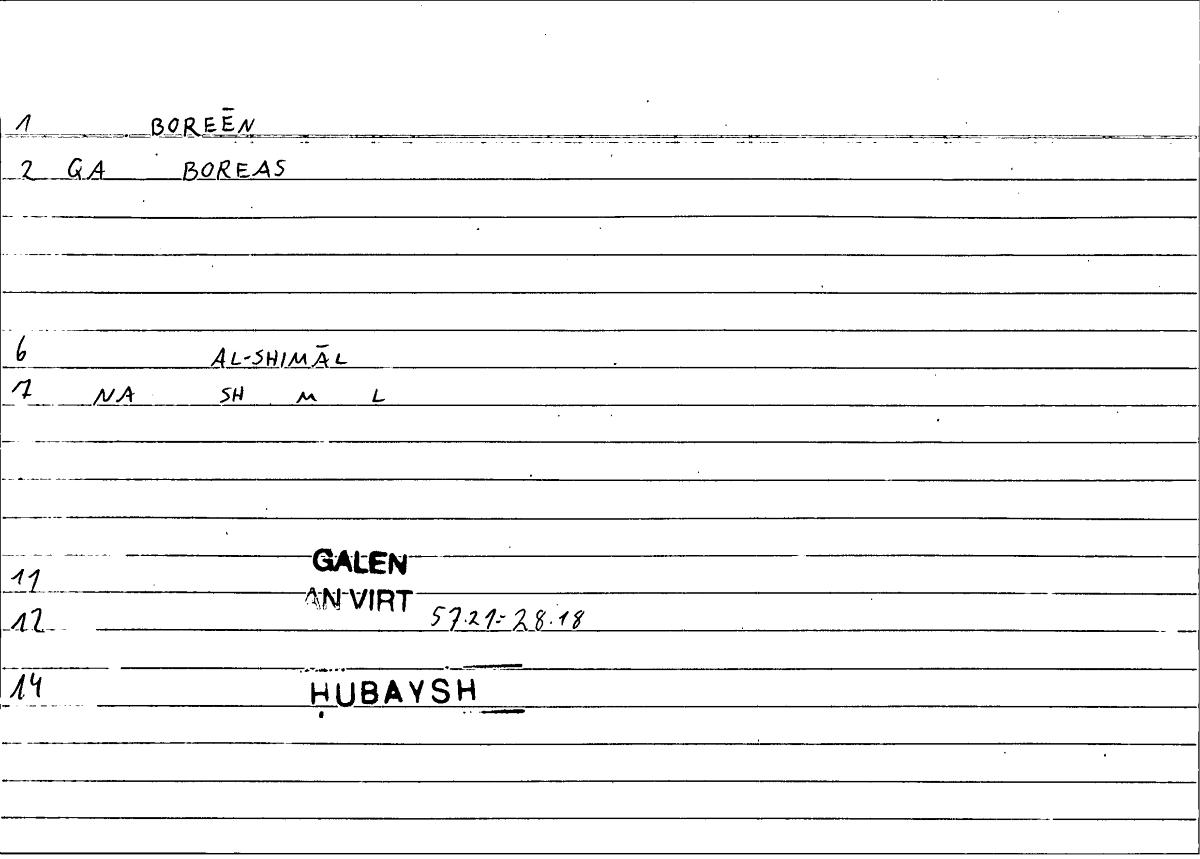 1 BOREĒN
2 GA BOREAS
6 AL-SHIMĀL
7 NA SH M L
11 GALEN
AN VIRT
12 57.21 = 28.18
14 ḤUBAYSH